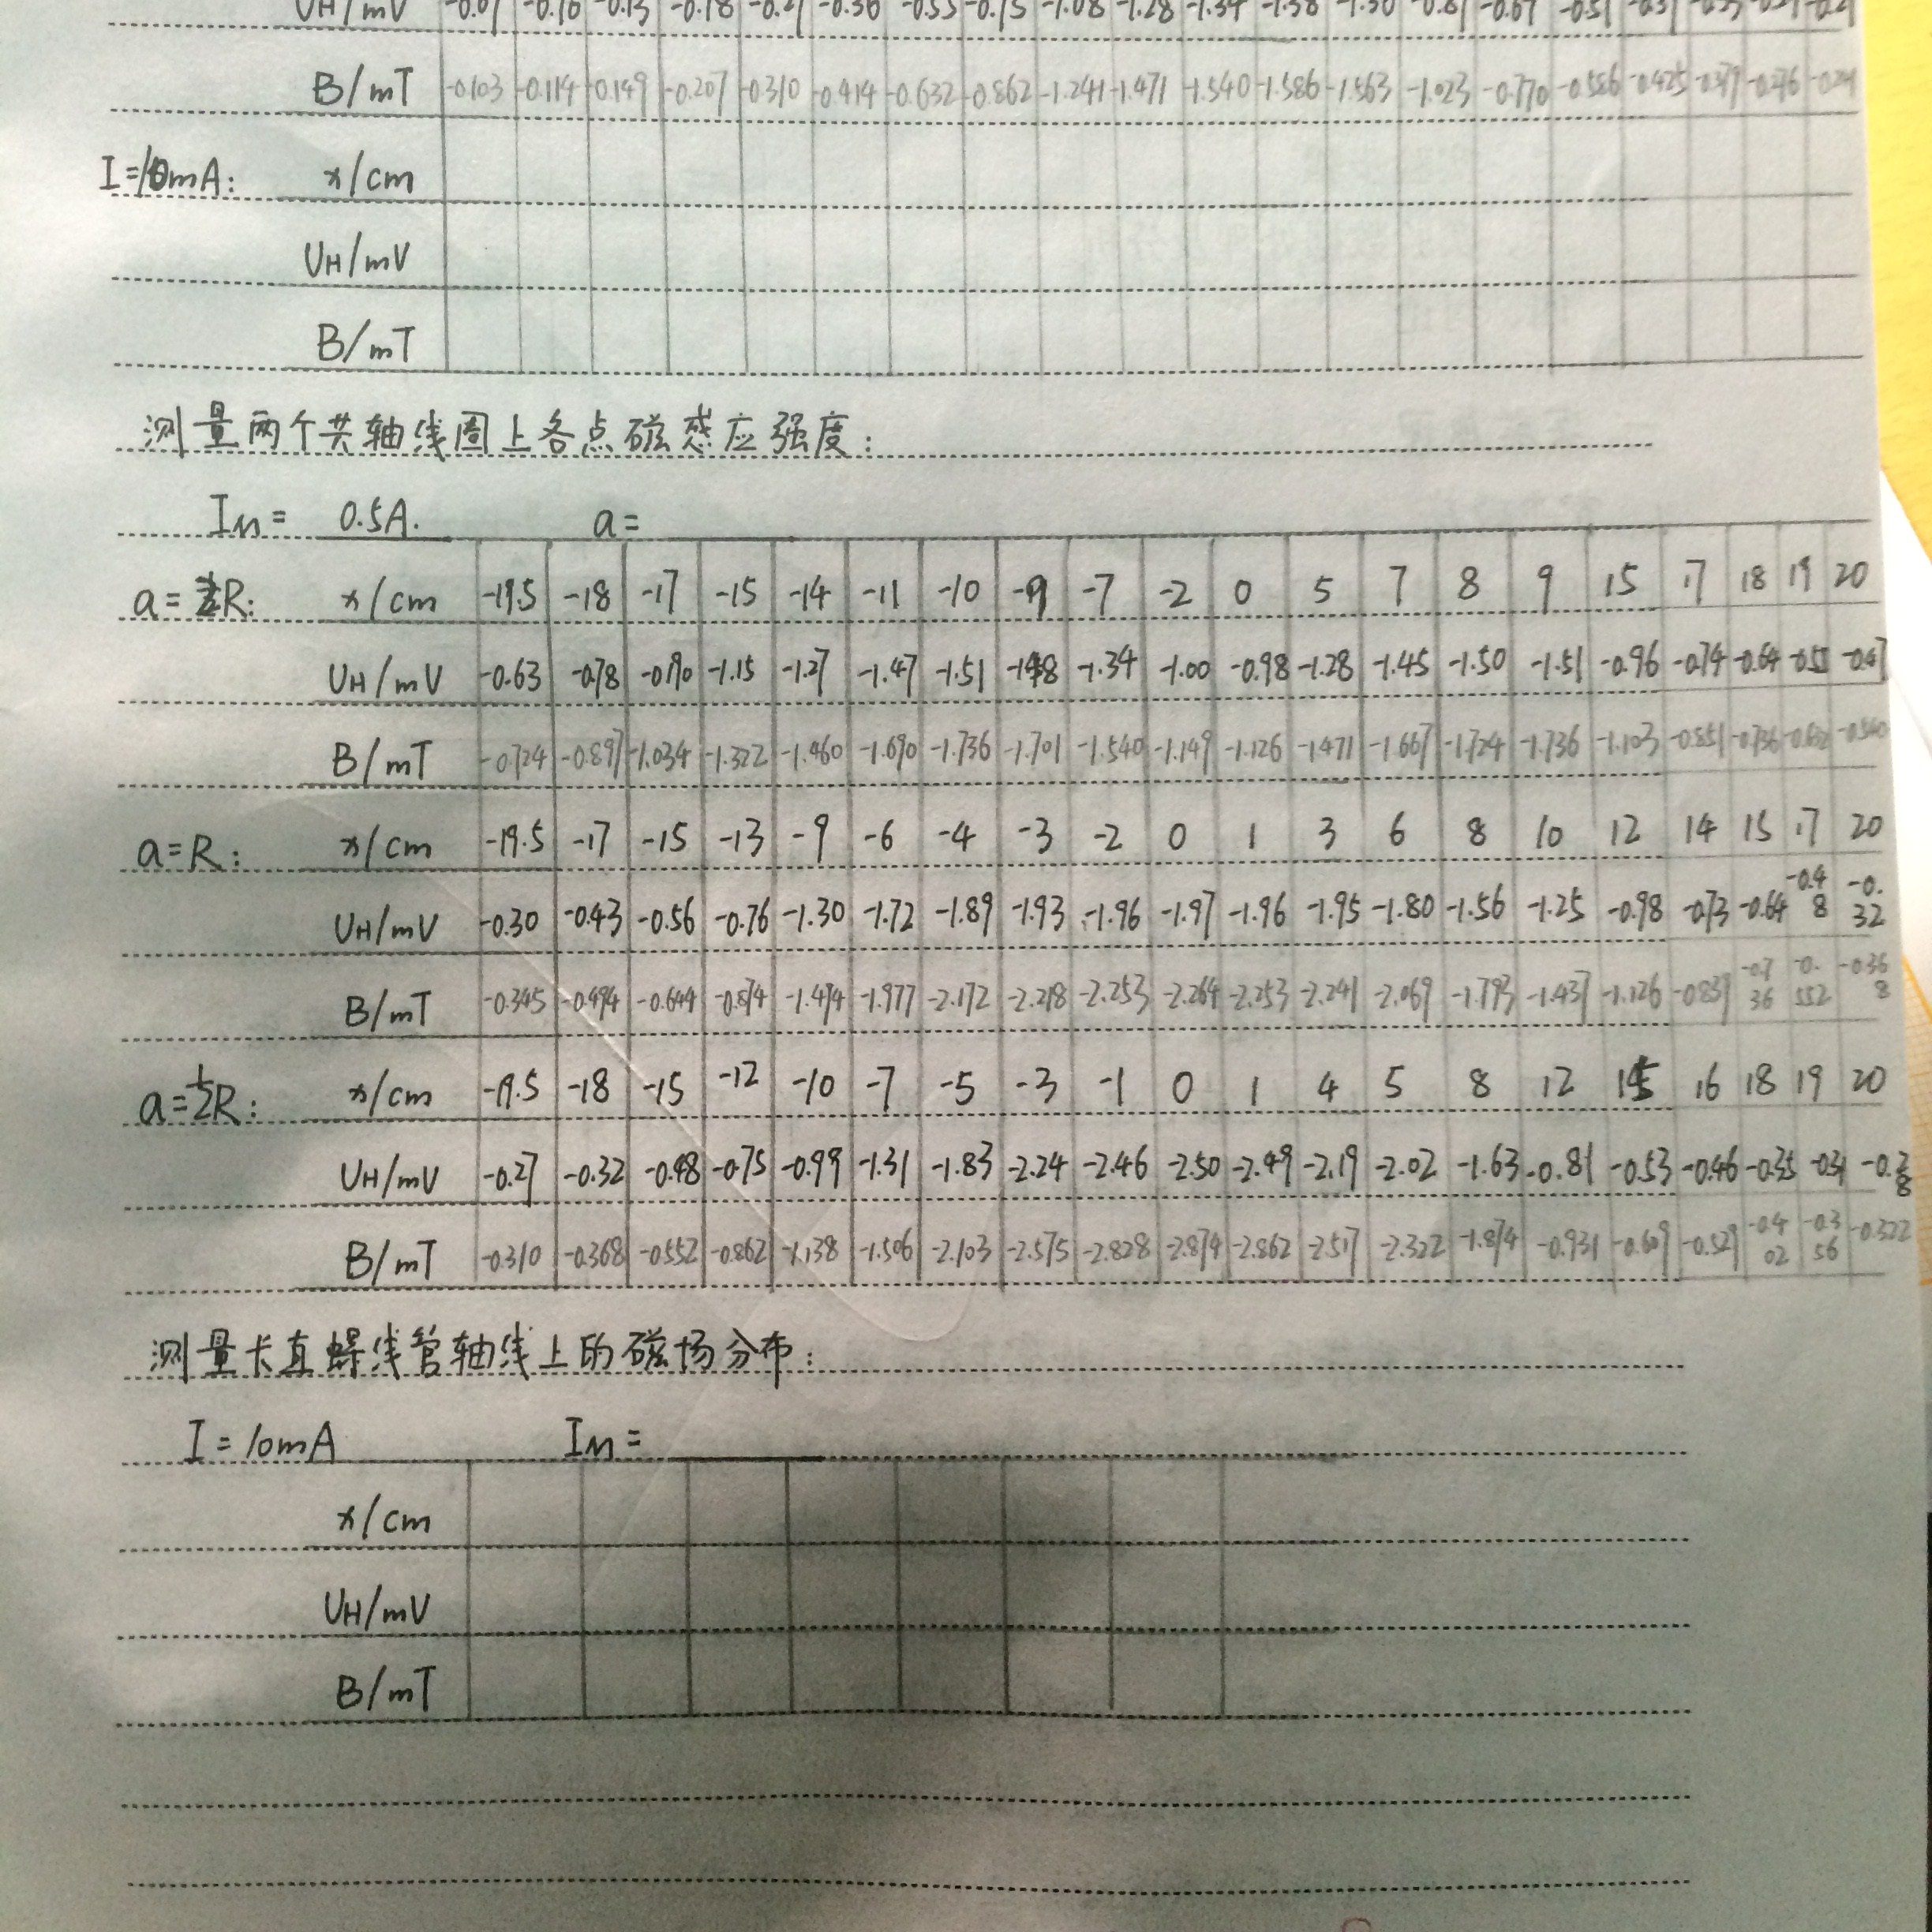 UH/mV -0.13 -0.18 -0.36 -0.55 -0.75 -1.08 -1.28 -1.34 -1.38 -0.67 -0.51
B/mT -0.103 -0.114 -0.149 -0.207 -0.310 -0.414 -0.632 -0.862 -1.241 -1.471 -1.540 -1.586 -1.563 -1.023 -0.770 -0.586 -0.425 -0.379 -0.276
I=10mA: x/cm
UH/mV
B/mT
测量两个共轴线圈上各点磁感应强度:
IM= 0.5A. a=
a=2R: x/cm -19.5 -18 -17 -15 -14 -11 -10 -9 -7 -2 0 5 7 8 9 15 17 18 19 20
UH/mV -0.63 -0.78 -0.90 -1.15 -1.27 -1.47 -1.51 -1.48 -1.34 -1.00 -0.98 -1.28 -1.45 -1.50 -1.51 -0.96 -0.74 -0.64 -0.55 -0.47
B/mT -0.724 -0.897 -1.034 -1.322 -1.460 -1.690 -1.736 -1.701 -1.540 -1.149 -1.126 -1.471 -1.667 -1.724 -1.736 -1.103 -0.851 -0.736 -0.632 -0.540
a=R: x/cm -19.5 -17 -15 -13 -9 -6 -4 -3 -2 0 1 3 6 8 10 12 14 15 17 20
UH/mV -0.30 -0.43 -0.56 -0.76 -1.30 -1.72 -1.89 -1.93 -1.96 -1.97 -1.96 -1.95 -1.80 -1.56 -1.25 -0.98 -0.73 -0.64 -0.48 -0.32
B/mT -0.345 -0.494 -0.644 -0.874 -1.494 -1.977 -2.172 -2.218 -2.253 -2.264 -2.253 -2.241 -2.069 -1.793 -1.437 -1.126 -0.839 -0.736 -0.552 -0.368
a=½R: x/cm -19.5 -18 -15 -12 -10 -7 -5 -3 -1 0 1 4 5 8 12 15 16 18 19 20
UH/mV -0.27 -0.32 -0.48 -0.75 -0.99 -1.31 -1.83 -2.24 -2.46 -2.50 -2.49 -2.19 -2.02 -1.63 -0.81 -0.53 -0.46 -0.35 -0.31 -0.28
B/mT -0.310 -0.368 -0.552 -0.862 -1.138 -1.506 -2.103 -2.575 -2.828 -2.874 -2.862 -2.517 -2.322 -1.874 -0.931 -0.609 -0.529 -0.402 -0.356 -0.322
测量长直螺线管轴线上的磁场分布:
I=10mA IM=
x/cm
UH/mV
B/mT